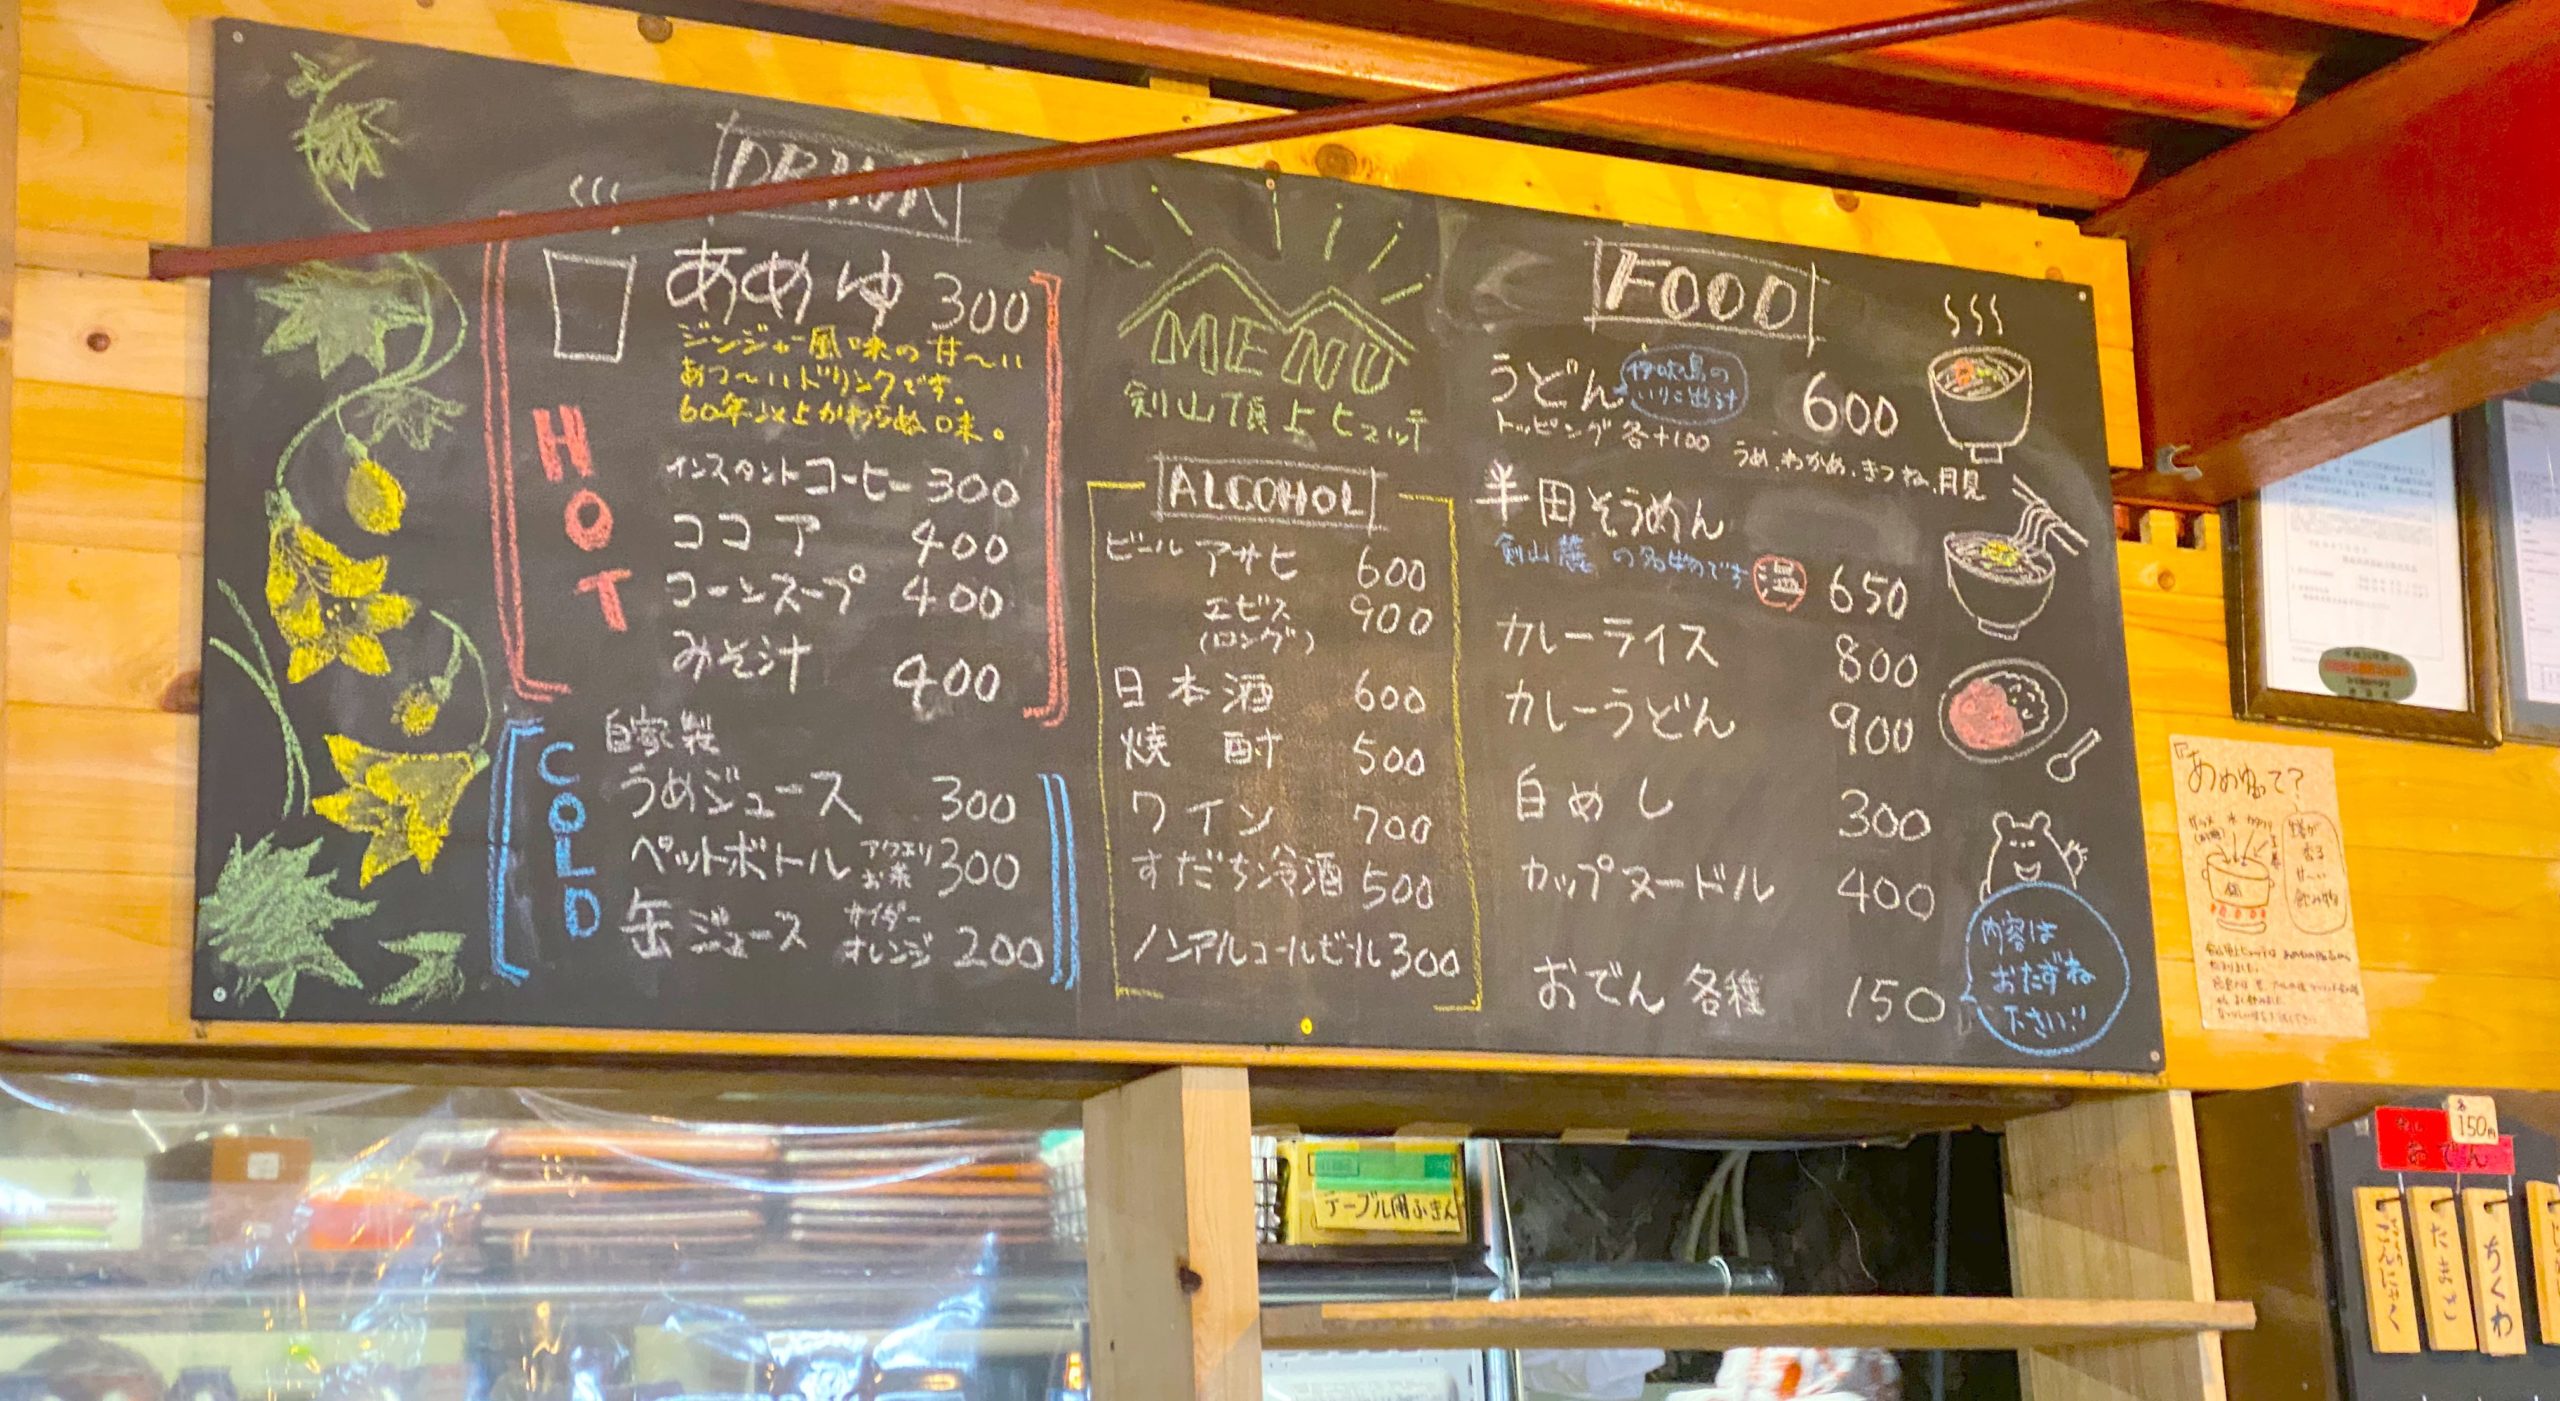 DRINK
HOT
あめゆ 300
ジンジャー風味の甘〜い
あつ〜いドリンクです。
60年以上かわらぬ味。
インスタントコーヒー 300
ココア 400
コーンスープ 400
みそ汁 400
COLD
自家製
うめジュース 300
ペットボトル アクエリ お茶 300
缶ジュース サイダー オレンジ 200
MENU
剣山頂上ヒュッテ
ALCOHOL
ビール アサヒ 600
エビス 900
(ロング)
日本酒 600
焼酎 500
ワイン 700
すだち冷酒 500
ノンアルコールビール 300
FOOD
うどん 伊吹島の いりこ出汁 600
トッピング 各+100 うめ、わかめ、きつね、月見
半田そうめん
剣山麓の名物です 温 650
カレーライス 800
カレーうどん 900
白めし 300
カップヌードル 400
おでん 各種 150
内容は
おたずね
下さい!!
『あめゆって?
生姜が
香る
甘〜い
飲み物
テーブル用ふきん
各
150円
おでん
こんにゃく
たまご
ちくわ